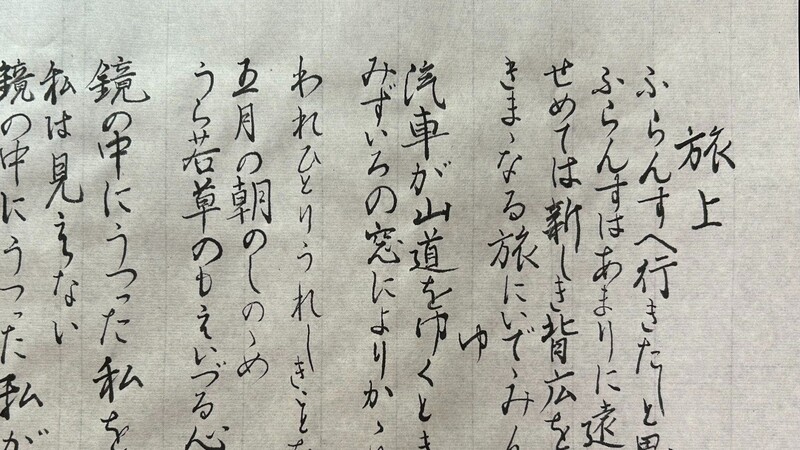 旅上
ふらんすへ行きたしと思
ふらんすはあまりに遠
せめては新しき背広を
きまゝなる旅にいでゝみん
ゆ
汽車が山道をゆくとき
みずいろの窓によりかゝ
われひとりうれしきこと
五月の朝のしのゝめ
うら若草のもえいづる心
鏡の中にうつった私を
私は見えない
鏡の中にうつった私が